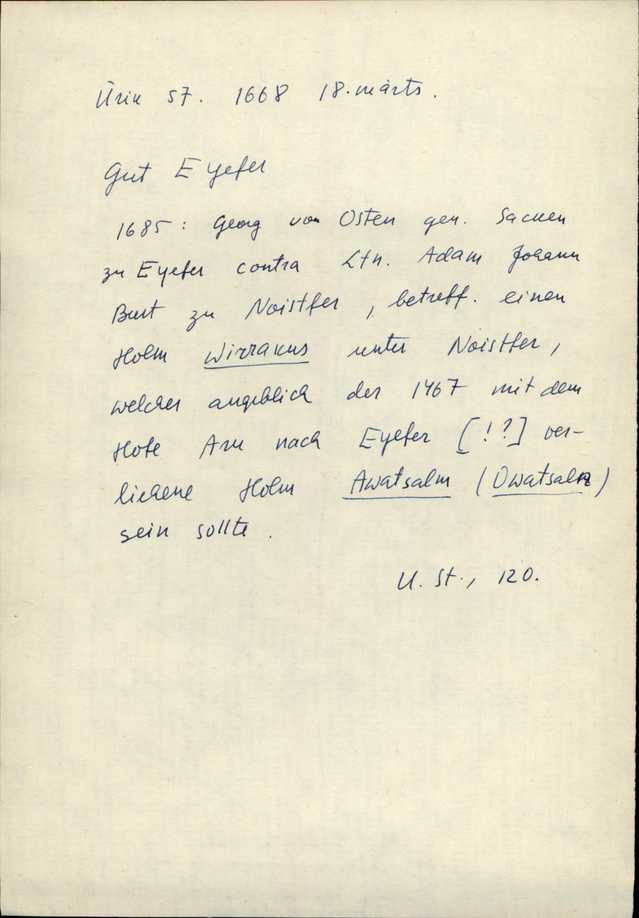 Ürik 57. 1668 18. märts.
Gut Eyefer
1685: Georg von Osten gen. Sacken
zu Eyefer contra Ltn. Adam Johann
zu Noistfer, betreff. einen
Holm Wirrakus unter Noistfer,
welcher angeblich der 1467 mit dem
Hofe Aru nach Eyefer [!?] ver-
liehene Holm Awatsalm (Owatsalm)
sein sollte.
U. St., 120.